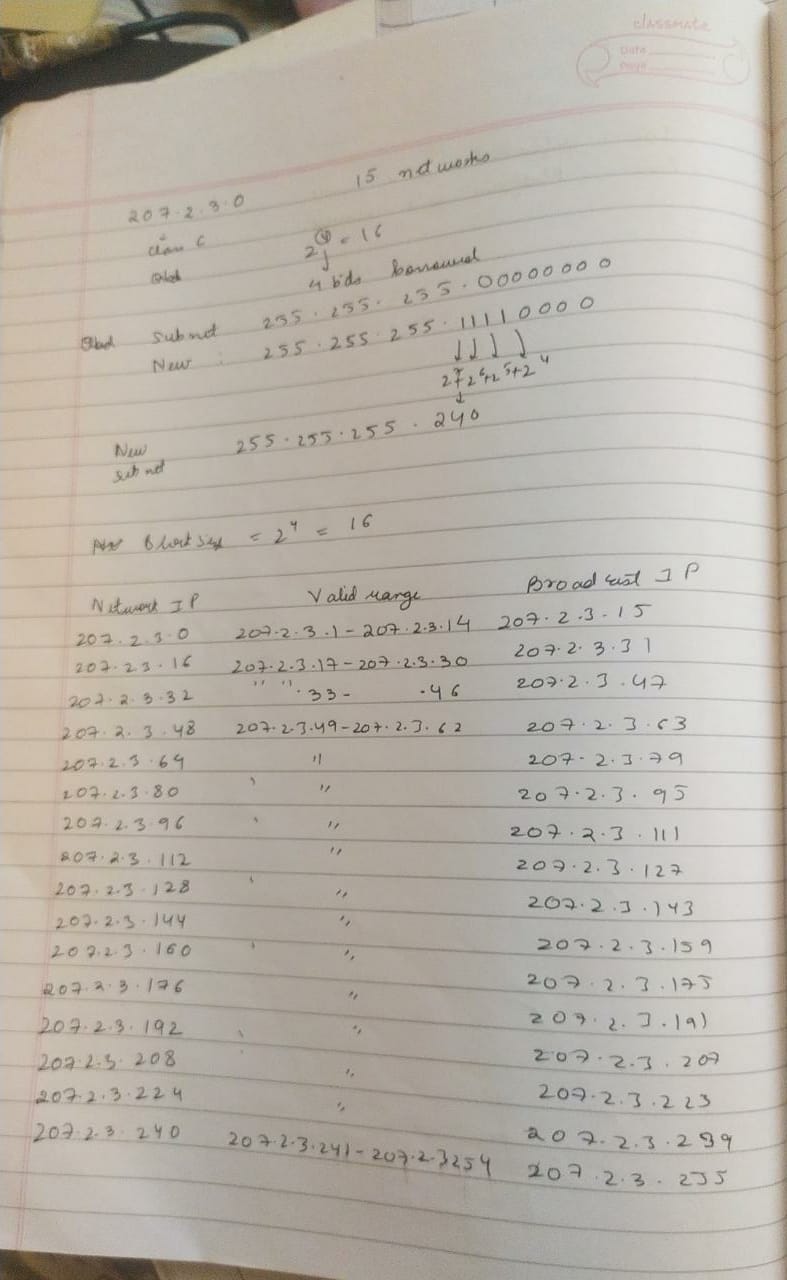 classmate
Date
Page
15 networks
207.2.3.0
class C
2^4 = 16
4 bits borrowed
subnet 255.255.255.00000000
New : 255.255.255.11110000
2^7+2^6+2^5+2^4
New subnet 255.255.255.240
Block size = 2^4 = 16
Network IP Valid range Broadcast IP
207.2.3.0 207.2.3.1 - 207.2.3.14 207.2.3.15
207.2.3.16 207.2.3.17 - 207.2.3.30 207.2.3.31
207.2.3.32 " " .33 - .46 207.2.3.47
207.2.3.48 207.2.3.49 - 207.2.3.62 207.2.3.63
207.2.3.64 " 207.2.3.79
207.2.3.80 " 207.2.3.95
207.2.3.96 " 207.2.3.111
207.2.3.112 " 207.2.3.127
207.2.3.128 " 207.2.3.143
207.2.3.144 " 207.2.3.159
207.2.3.160 " 207.2.3.175
207.2.3.176 " 207.2.3.191
207.2.3.192 " 207.2.3.207
207.2.3.208 " 207.2.3.223
207.2.3.224 " 207.2.3.239
207.2.3.240 207.2.3.241 - 207.2.3254 207.2.3.255